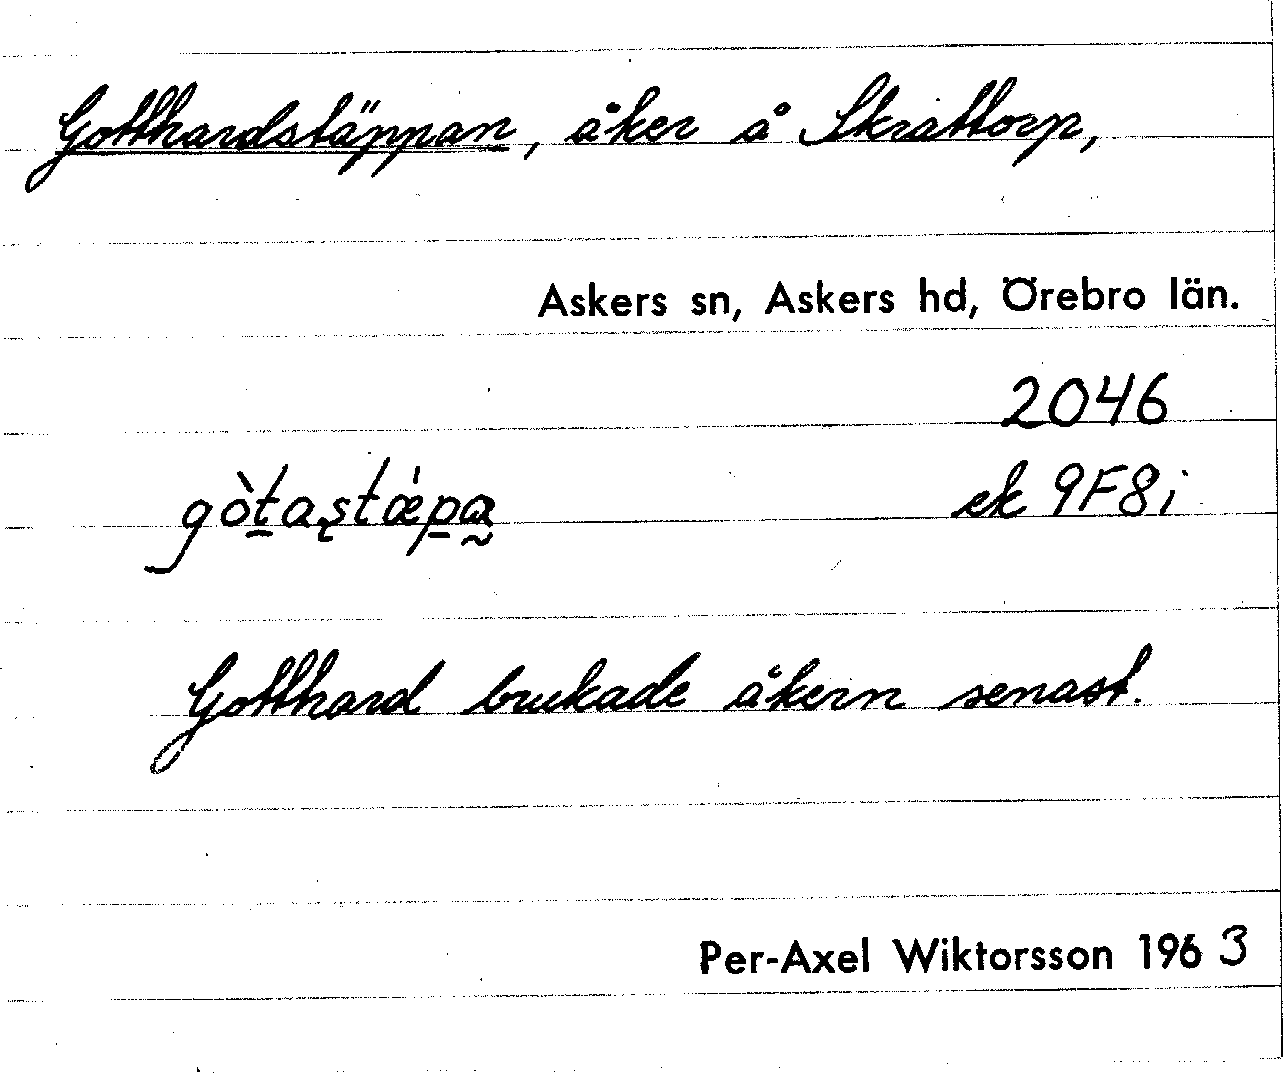 Gotthardstäppan, åker å Skrattorp,
Askers sn, Askers hd, Örebro län.
2046
gòtaştǽpa ek 9F8i
Gotthard brukade åkern senast.
Per-Axel Wiktorsson 1963